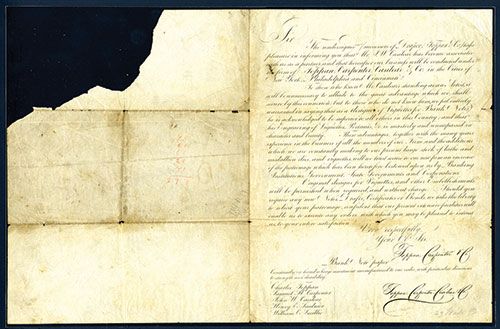 Sir
The undersigned members of Draper, Toppan & Co. have
pleasure in informing you that Mr. J. W. Casilear has become associated
with us as a partner and that hereafter our business will be conducted under
the firm of Toppan, Carpenter, Casilear & Co. in the Cities of
New York, Philadelphia and Cincinnati.
To those who know Mr. Casilear's standing as an Artist, it
will be unnecessary to allude to the great advantage which we shall
derive by this connexion but to those who do not know him, we feel entirely
warranted in saying that as a Designer of Vignettes for Bank Notes
he is acknowledged to be superior to all others in this Country, and that
his Engraving of Vignettes, Portraits, &c. is unrivalled in
character and beauty. These advantages, together with the many years
experience in the business of all the members of our Firm and the additions
which we are constantly making to our present large stock of Dies and
medallion dies, and vignettes will we trust secure to us an increase
of the patronage which has been heretofore bestowed upon us by Banking
Institutions, Government, State Governments and Corporations
Original designs for Vignettes, and other Embellishments
will be furnished when required, and without charge. Should you
require any new Notes, Drafts, Certificates or Bonds, we take the liberty
to solicit your patronage, confident that our present increased facilities will
enable us to execute any orders with which you may be pleased to intrust
us, to your entire satisfaction.
Very respectfully
Your Ob. Svs.
Toppan Carpenter & C
Bank Note paper
Constantly on hand or bank note paper manufactured to our order, with particular directions
to strength and durability.
Charles Toppan
Samuel H. Carpenter
John W. Casilear
Henry E. Saulnier
William C. Smillie
Toppan Carpenter Casilear & C.